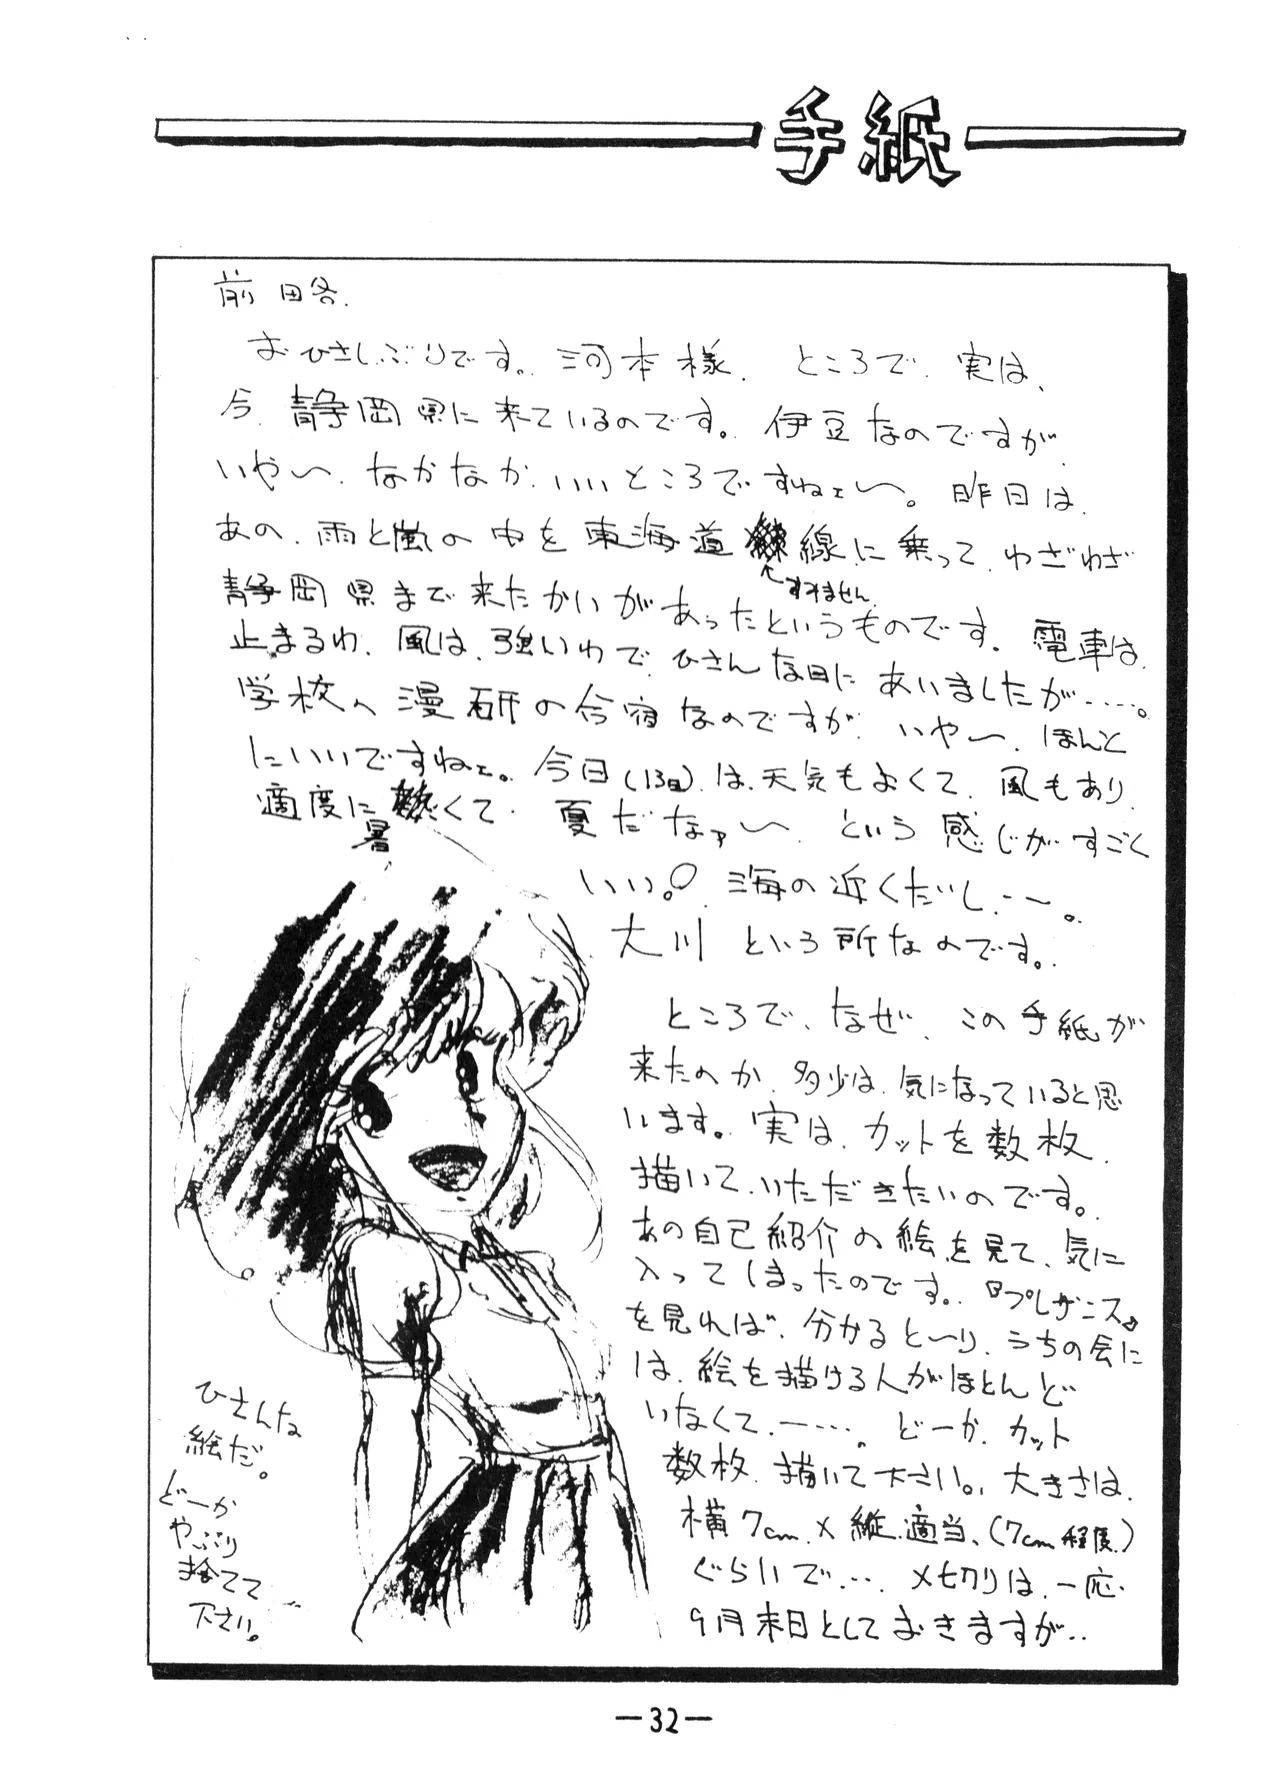 手紙
前略.
おひさしぶりです。河本様. ところで. 実は、
今. 静岡県に来ているのです。伊豆なのですが.
いや〜. なかなか. いいところですねェ〜。昨日は.
あの. 雨と嵐の中を東海道線に乗って. わざわざ
すみません.
静岡県まで来たかいがあったというものです。電車は.
止まるわ. 風は. 強いわで. ひさんな目にあいましたが‥‥‥。
学校の漫研の合宿なのですが. いや〜. ほんと
にいいですねェ。今日(13日)は. 天気もよくて. 風もあり.
適度に暑くて. 夏だなァ〜 という感じがすごく
いい。海の近くだし. ー〜。
大川 という所なのです。
ところで. なぜ. この手紙が
来たのか. 多少は. 気になっていると思
います。実は. カットを数枚.
描いて. いただきたいのです。
あの自己紹介の絵を見て. 気に
入ってしまったのです。『プレザニス』
を見れば. 分かるとーり. うちの会に
は. 絵を描ける人がほとんど
いなくて. ー‥‥。どーか. カット
数枚. 描いて下さい。大きさは.
横7cm × 縦. 適当、(7cm程度.)
ぐらいで‥‥ 〆切りは. 一応.
9月末日としておきますが‥
ひさんな
絵だ。
どーか
やぶり
捨てて
下さい。
—32—